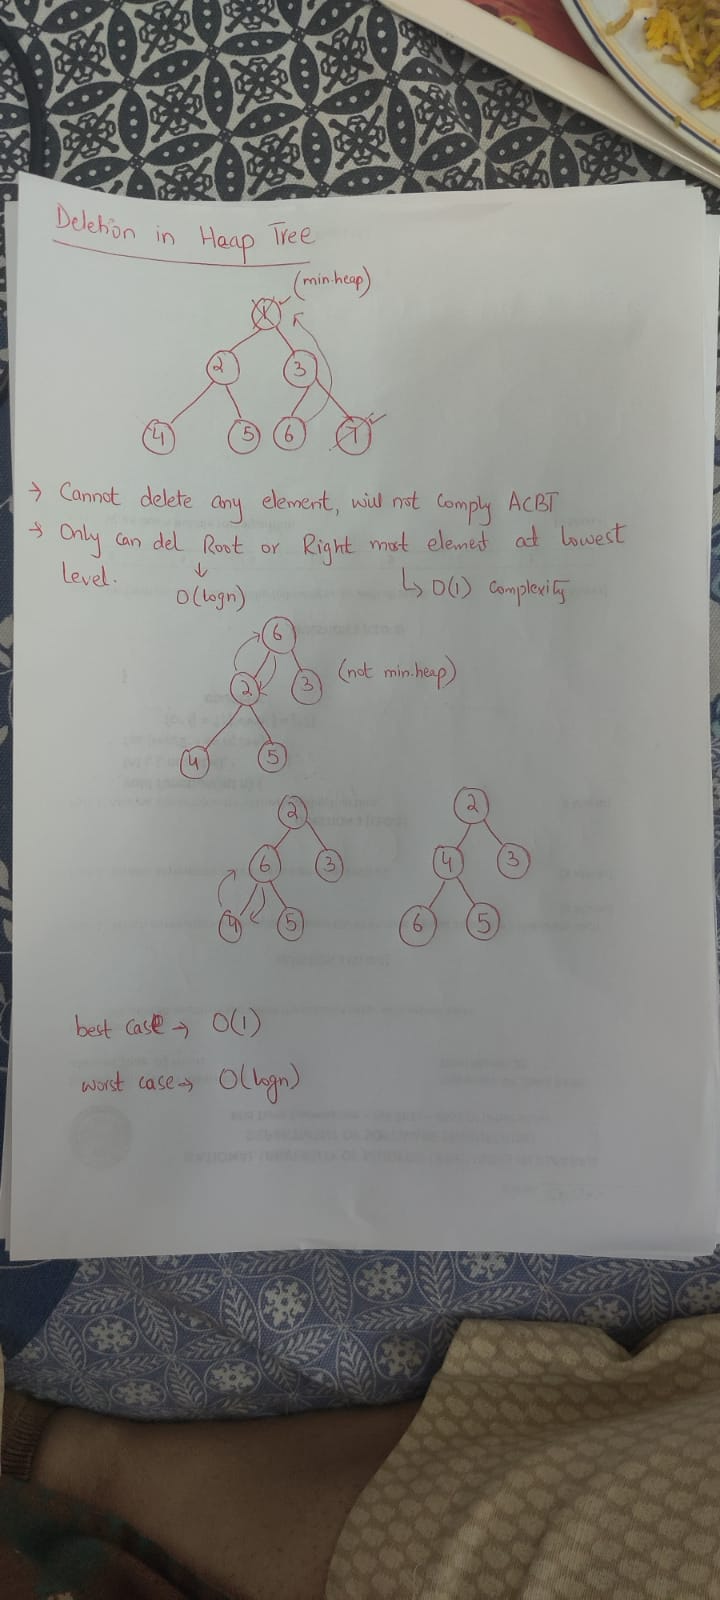 Deletion in Heap Tree
(min.heap)
1
2 3
4 5 6 7
→ Cannot delete any element, will not comply ACBT
→ Only can del Root or Right most element at lowest
level. ↓ ↳ O(1) Complexity
O(logn)
6
2 3 (not min.heap)
4 5
2 2
6 3 4 3
4 5 6 5
best case → O(1)
worst case → O(logn)